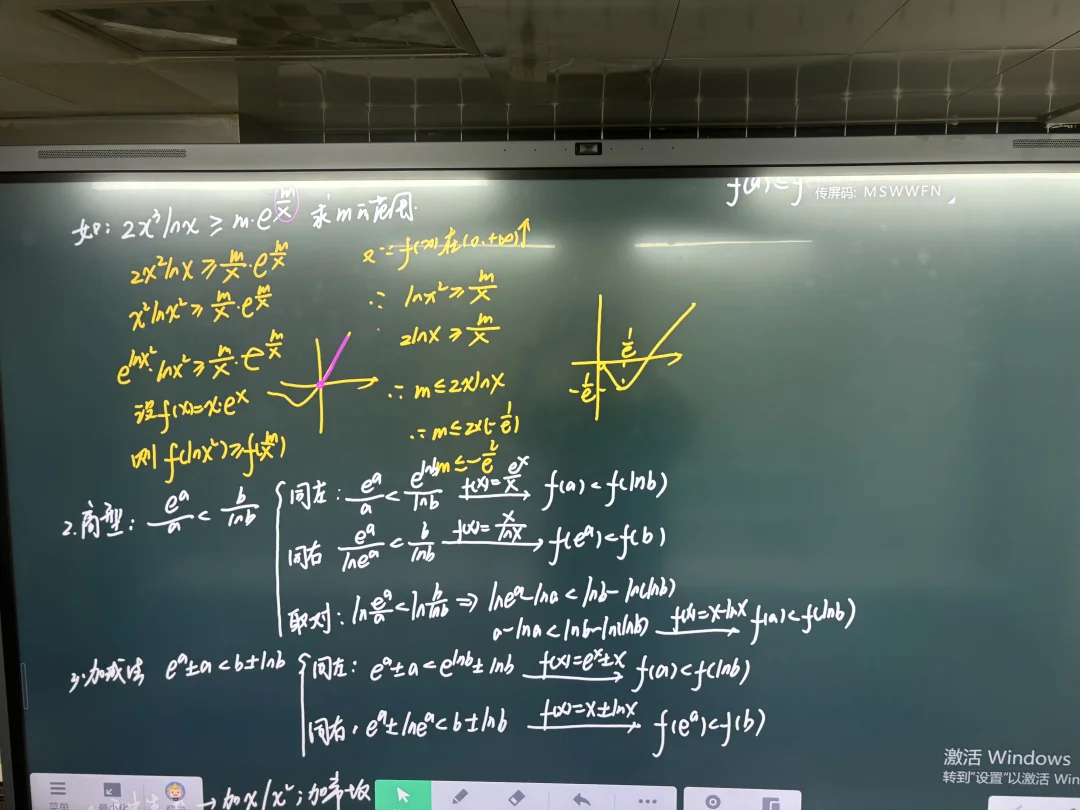 f(a)<f
传屏码: MSWWFN
如: 2x³lnx ≥ m·e^(m/x) 求m的范围.
2x²lnx ≥ m/x·e^(m/x)
x²lnx² ≥ m/x·e^(m/x)
e^(lnx²)·lnx² ≥ m/x·e^(m/x)
设f(x)=x·e^x
则 f(lnx²)≥f(m/x)
f(x)在(0,+∞)↑
∴ lnx² ≥ m/x
2lnx ≥ m/x
∴ m ≤ 2xlnx
∴ m ≤ 2×(-1/e)
m ≤ -2/e
1/e
-1/e
2.商型: e^a/a < b/lnb
同左: e^a/a < e^(lnb)/lnb f(x)=e^x/x → f(a)<f(lnb)
同右 e^a/lne^a < b/lnb f(x)=x/lnx → f(e^a)<f(b)
取对: ln e^a/a < ln b/lnb ⇒ lne^a-lna < lnb-ln(lnb)
a-lna < lnb-ln(lnb) f(x)=x-lnx → f(a)<f(lnb)
3.加减型 e^a±a < b±lnb
同左: e^a±a < e^(lnb)±lnb f(x)=e^x±x → f(a)<f(lnb)
同右: e^a±lne^a < b±lnb f(x)=x±lnx → f(e^a)<f(b)
→加x/x²;加常数
菜单
最小化
激活 Windows
转到"设置"以激活 Win